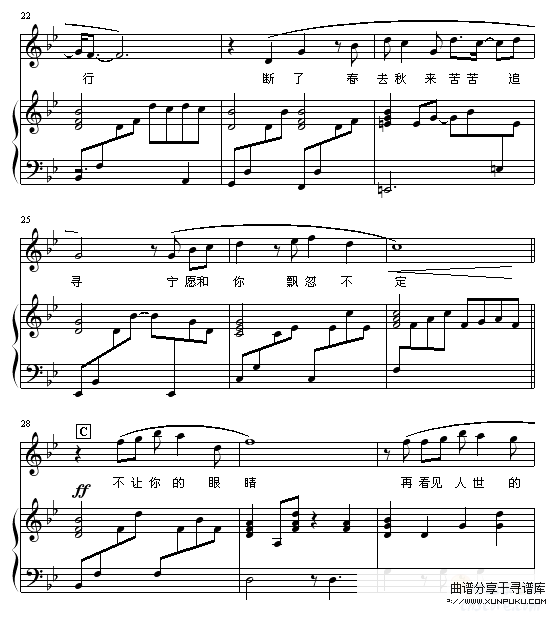 22
行 断了 春去秋来苦苦追
25
寻 宁愿和你 飘忽不 定
28
C
ff
不让你的眼 睛 再看见人世的
曲谱分享于寻谱库
↗WWW.XUNPUKU.COM